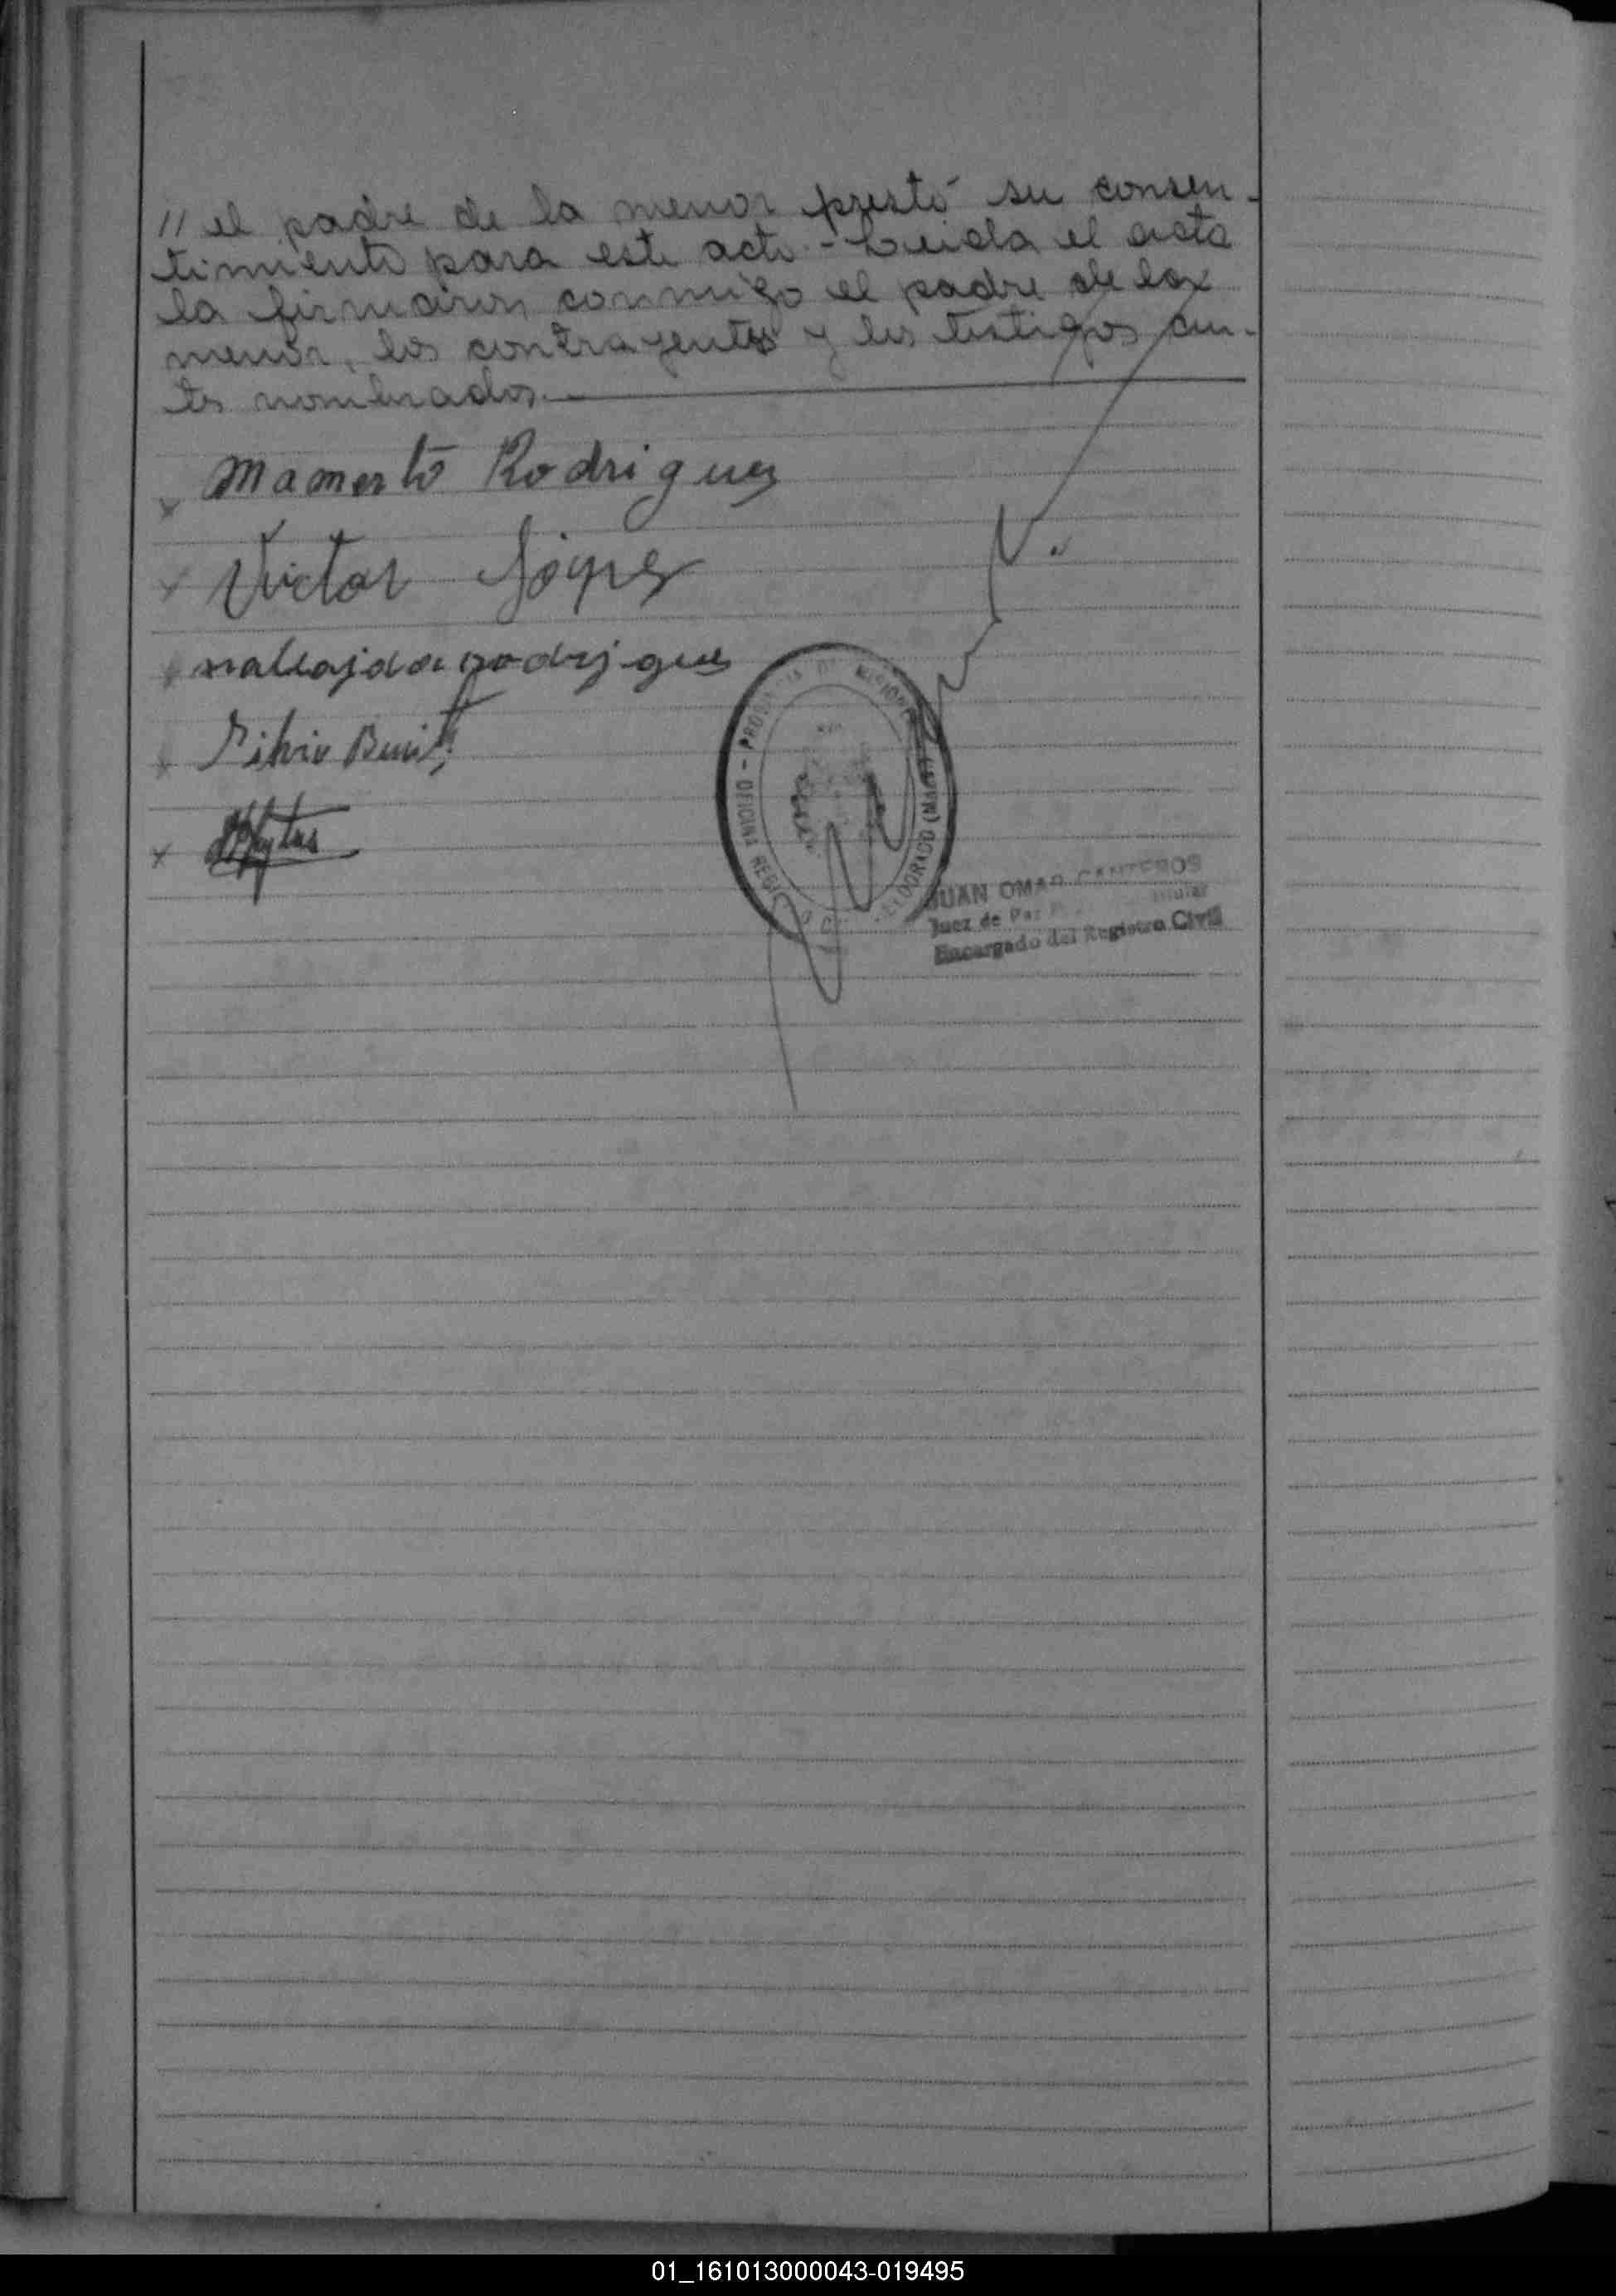 // el padre de la menor prestó su consen-
timiento para este acto.- Leida el acta
la firmaron conmigo el padre de la
menor, los contrayentes y los testigos an-
tes nombrados.
x Mamerto Rodriguez
x Victor López
x rodrigues
x Silvio
x
PROVINCIA DE MISIONES
OFICINA REGIS
ELDORADO
JUAN OMAR CANTEROS
Juez de Paz Titular
Encargado del Registro Civil
01_161013000043-019495